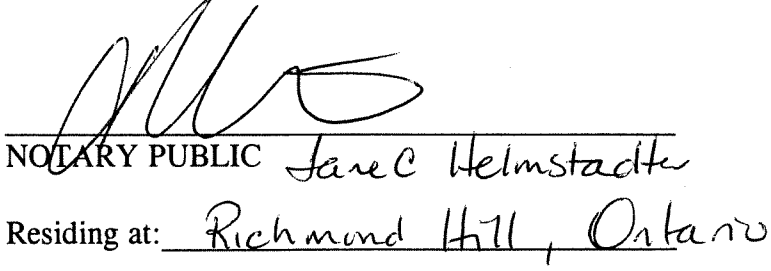 NOTARY PUBLIC Jane C Helmstadter
Residing at: Richmond Hill, Ontario